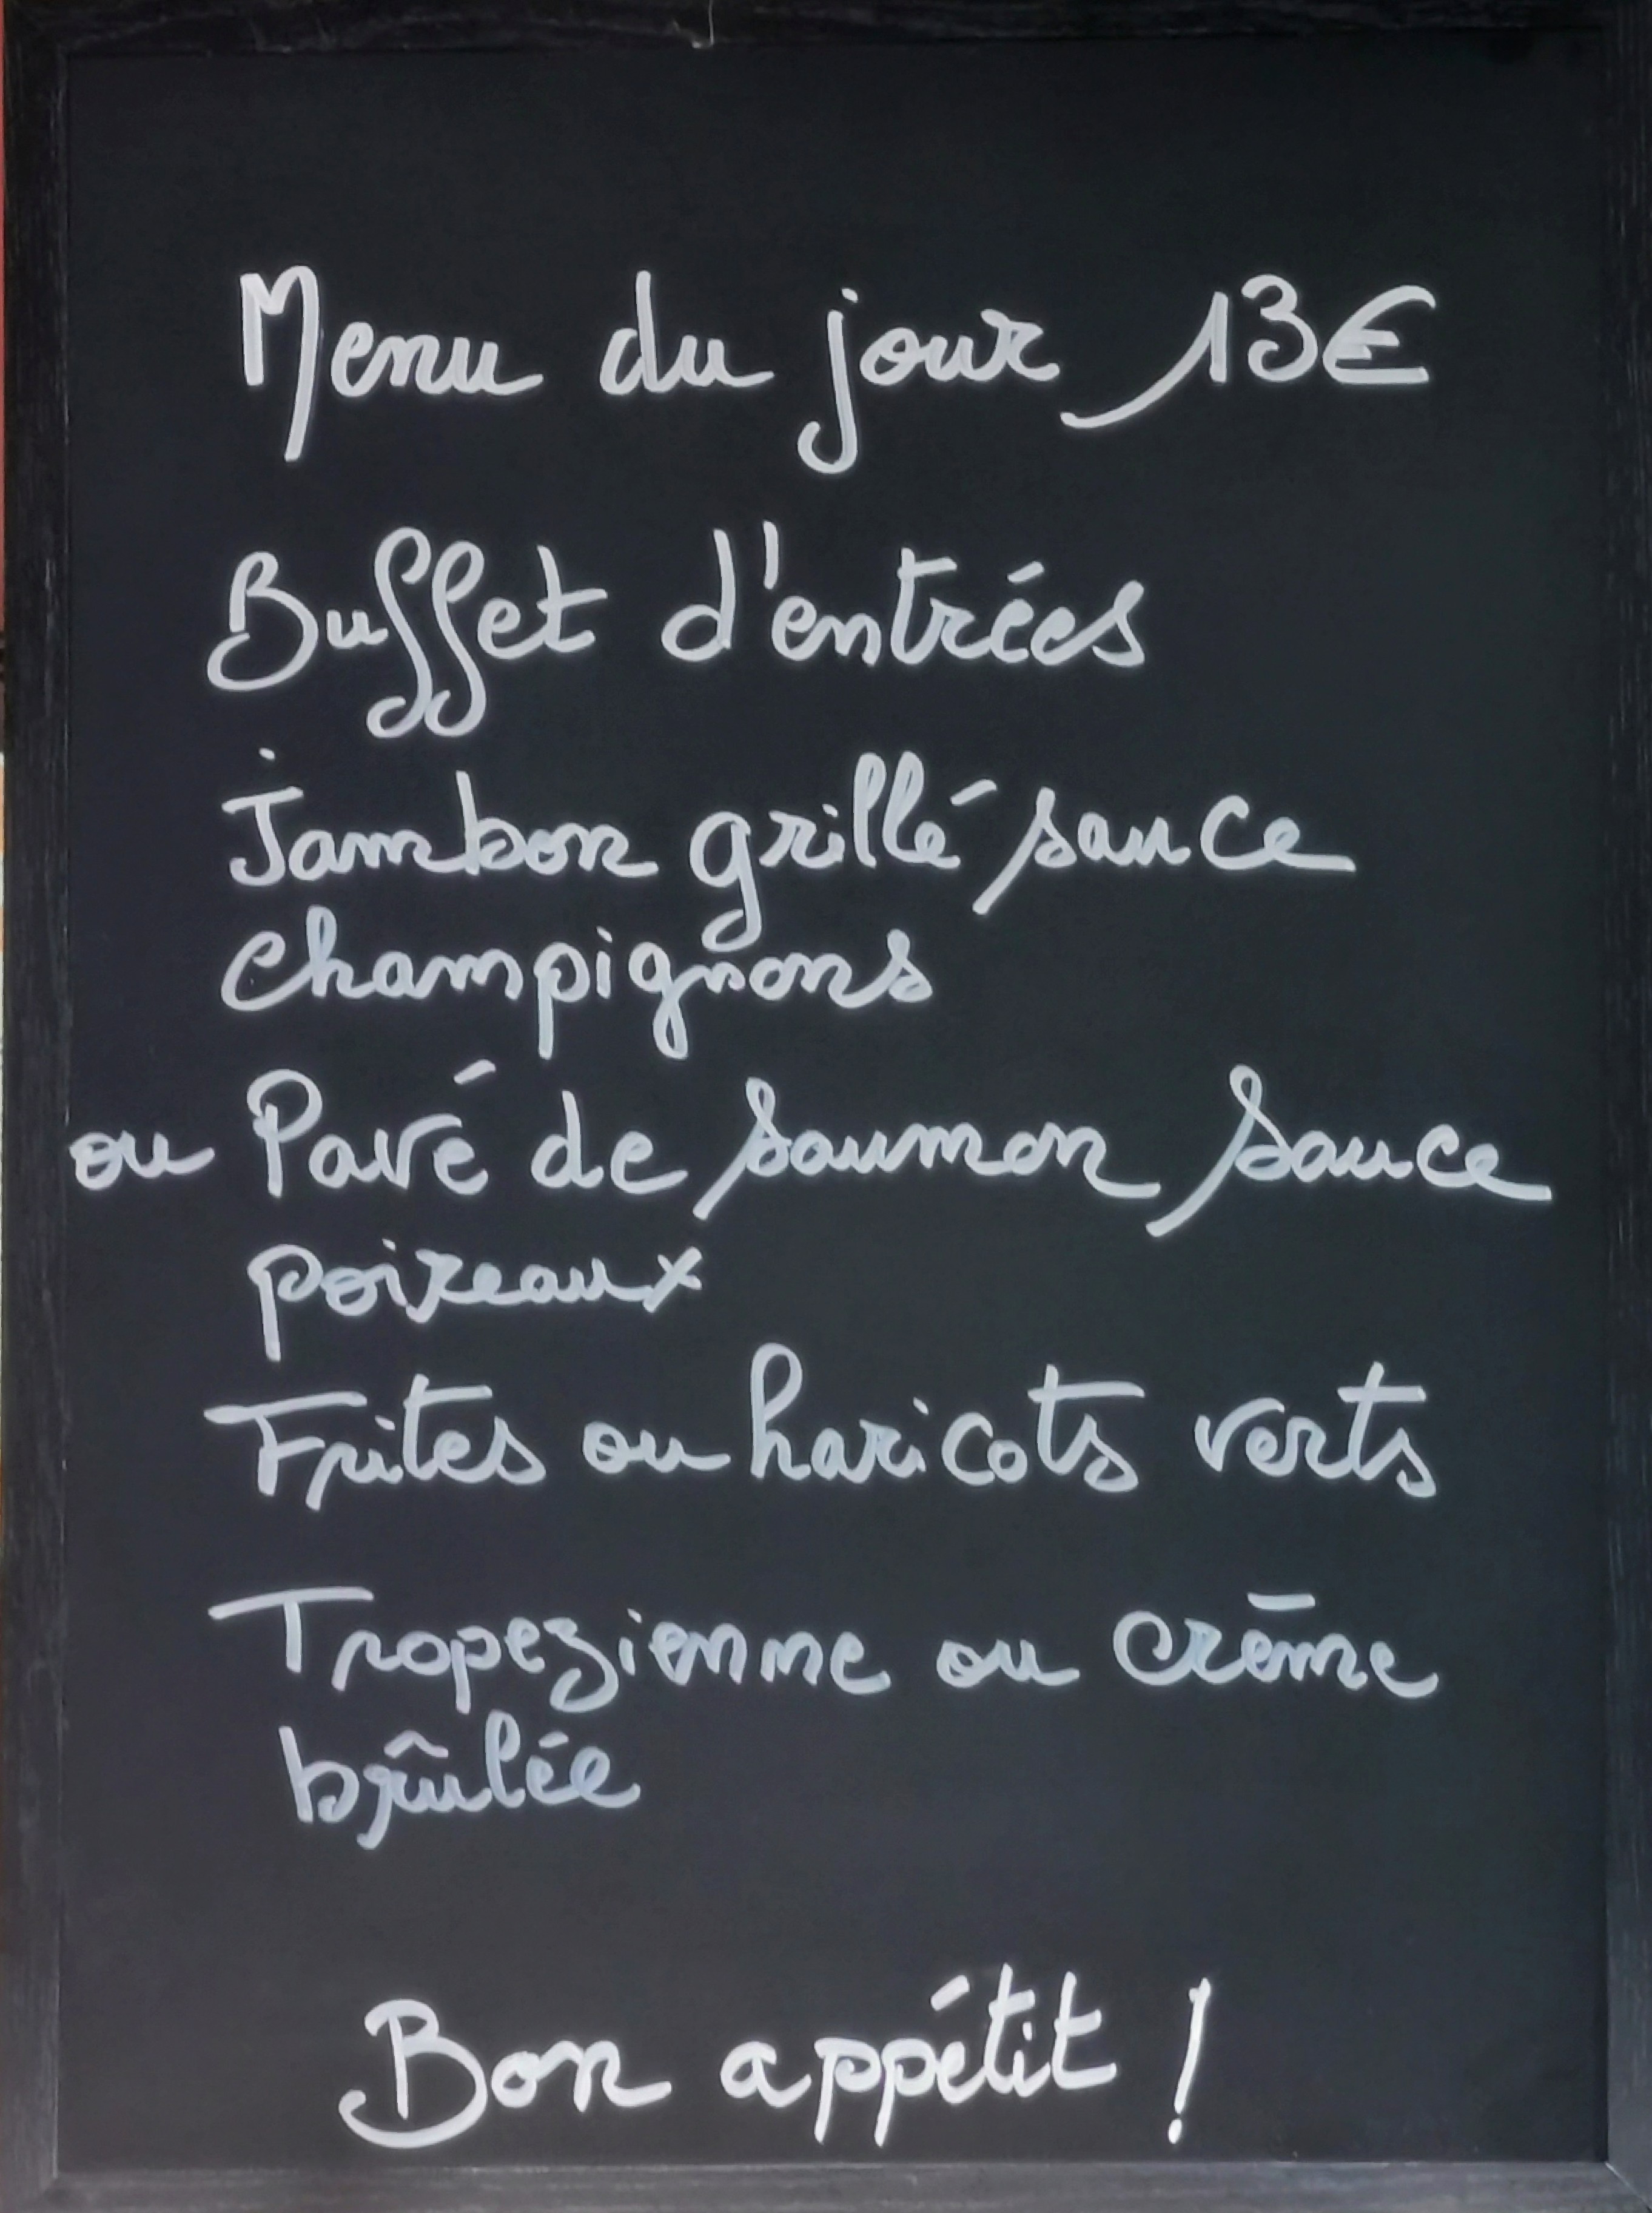 Menu du jour 13€
Buffet d'entrées
Jambon grillé sauce
champignons
ou Pavé de saumon sauce
poireaux
Frites ou haricots verts
Tropezienne ou crème
brûlée
Bon appétit !